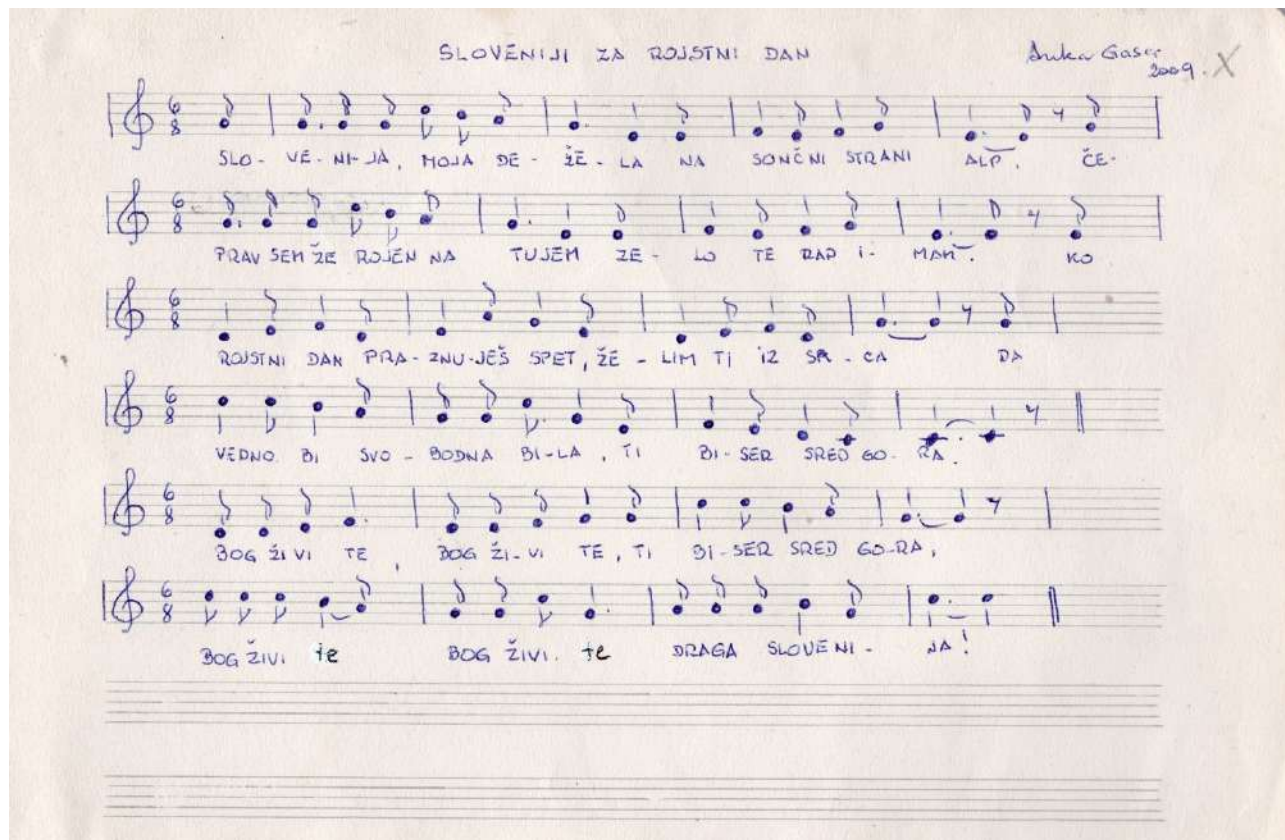 SLOVENIJI ZA ROJSTNI DAN
Anka Gaser
2009. X
6 8
SLO - VE - NI - JA, MOJA DE - ŽE - LA NA SONČNI STRANI ALP. ČE-
6 8
PRAV SEM ŽE ROJEN NA TUJEM ZE - LO TE RAD I - MAM. KO
6 8
ROJSTNI DAN PRA - ZNU - JEŠ SPET, ŽE - LIM TI IZ SR - CA DA
6 8
VEDNO BI SVO - BODNA BI - LA, TI BI - SER SRED GO - RA.
6 8
BOG ŽIVI TE, BOG ŽI - VI TE, TI BI - SER SRED GO - RA,
6 8
BOG ŽIVI te BOG ŽIVI. te DRAGA SLOVENI - JA!